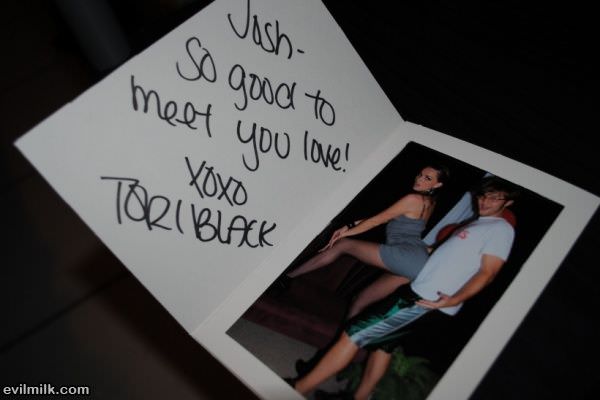 Josh-
So good to
meet you love!
XOXO
TORI BLACK
evilmilk.com